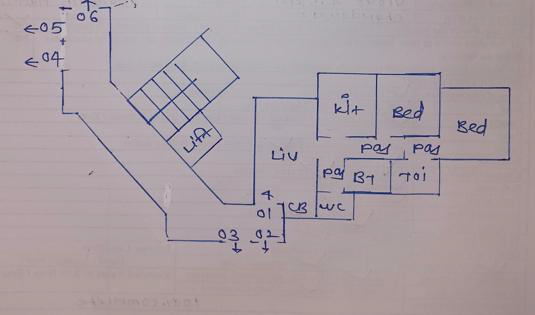 06
05
04
Lift
Kit
Bed
Bed
Liv
Pas
Pas
Pas
BT
Toi
CB
WC
01
03
02